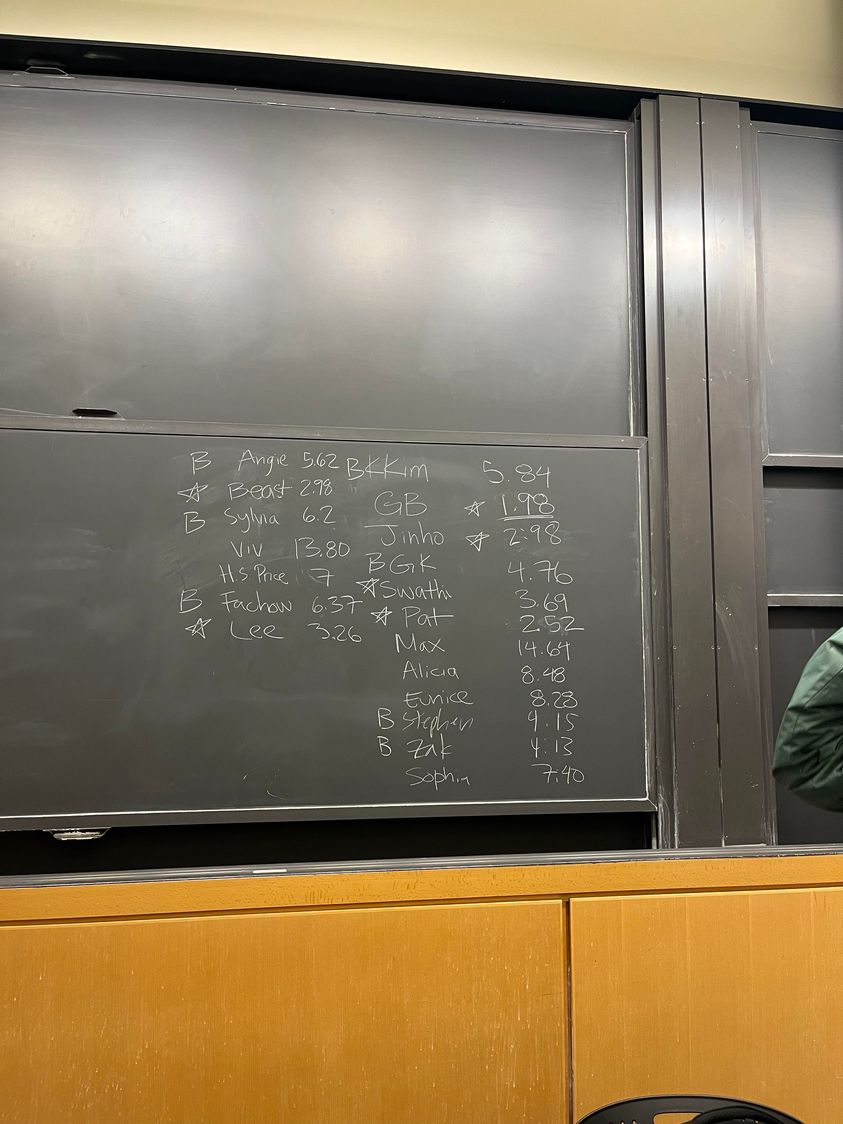 B Angie 5.62
☆ Beast 2.98
B Sylvia 6.2
Viv 13.80
H.S. Price 7
B Fachow 6.37
☆ Lee 3.26
B KKim 5.84
GB ☆ 1.98
Jinho ☆ 2.98
B GK 4.76
☆ Swathi 3.69
☆ Pat 2.52
Max 14.64
Alicia 8.48
Eunice 8.28
B Stephen 4.15
B Zak 4.13
Sophia 7.40